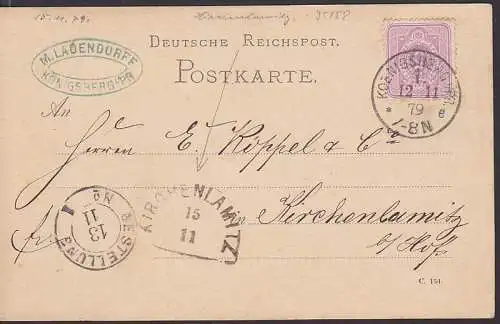 15.11.79.
Kirchenlamitz
DEUTSCHE REICHSPOST.
POSTKARTE.
M. LADENDORFF
KÖNIGSBERG I/PR
KOENIGSBERG I. PR.
1
12 11
79
7-8N
* e
An
Herren E. Köppel & Co
in Kirchenlamitz
b/Hof
fr.
KIRCHENLAMITZ
15
11
BESTELLUNG
NO
13
11
C. 154.